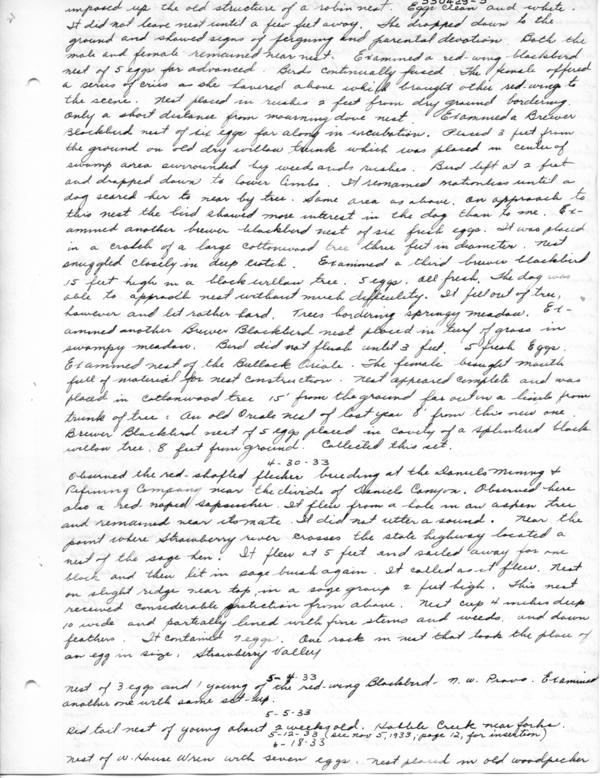 330429-3
imposed up the old structure of a robin nest. Eggs clean and white.
It did not leave nest until a few feet away. She dropped down to the
ground and showed signs of ferguing and parental devotion. Both the
male and female remained near nest. Examined a red-wing blackbird
nest of 5 eggs far advanced. Birds continually fused. The female offered
a series of cries as she hovered above which brought other red-wings to
the scene. Nest placed in rushes 2 feet from dry ground bordering.
Only a short distance from mourning dove nest. Examined a Brewer
Blackbird nest of six eggs far along in incubation. Placed 3 feet from
the ground on old dry willow trunk which was placed in center of
swamp area surrounded by weeds and rushes. Bird left at 2 feet
and dropped down to lower limbs. It remained motionless until a
dog scared her to near by tree. Same area as above. On approach to
this nest the bird showed more interest in the dog than to me. Ex-
amined another brewer blackbird nest of six fresh eggs. It was placed
in a crotch of a large cottonwood tree three feet in diameter. Nest
snuggled closely in deep crotch. Examined a third brewer blackbird
15 feet high in a black willow tree. 5 eggs, all fresh. The dog was
able to approach nest without much difficulty. It fell out of tree,
however and lit rather hard. Trees bordering springy meadow. Ex-
amined another Brewer Blackbird nest placed in turf of grass in
swampy meadow. Bird did not flush until 3 feet. 5 fresh Eggs.
Examined nest of the Bullock Oriole. The female brought mouth
full of material for nest construction. Nest appeared complete and was
placed in Cottonwood tree 15' from the ground far out on a limb from
trunk of tree: An old Oriole nest of last year 8' from this new one.
Brewer Blackbird nest of 5 eggs placed in cavity of a splintered black
willow tree. 8 feet from ground. Collected this set.
4-30-33
Observed the red-shafted flicker breeding at the Daniels Mining &
Refining Company near the divide of Daniels Canyon. Observed here
also a red-naped sapsucker. It flew from a hole in an aspen tree
and remained near its mate. It did not utter a sound. Near the
point where Strawberry river crosses the state highway located a
nest of the sage hen. It flew at 5 feet and sailed away for one
block and then lit in sage brush again. It called as it flew. Nest
on slight ridge near top, in a sage group 2 feet high. This nest
received considerable protection from above. Nest cup 4 inches deep
10 wide and partially lined with fine stems and weeds, and down
feathers. It contained 7 eggs. One rock in nest that took the place of
an egg in size. Strawberry Valley
5-4-33
Nest of 3 eggs and 1 young of the red-wing Blackbird - N.W. Provo. Examined
another one with same set-up.
5-5-33
Red tail nest of young about 2 weeks old. Hobble Creek near forks.
5-12-33 (see nov 5, 1933, page 12, for insertion)
6-18-33
Nest of W. House Wren with seven eggs. Nest placed in old woodpecker